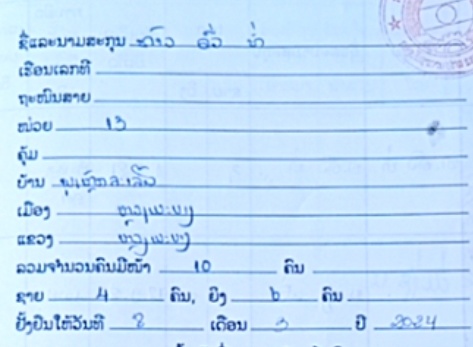 ຊື່ແລະນາມສະກຸນ ທ້າວ
ເຮືອນເລກທີ
ຖະໜົນສາຍ
ໜ່ວຍ 13
ຄຸ້ມ
ບ້ານ
ເມືອງ ຫຼວງພະບາງ
ແຂວງ ຫຼວງພະບາງ
ລວມຈຳນວນຄົນມີໜ້າ 10 ຄົນ
ຊາຍ 4 ຄົນ, ຍິງ 6 ຄົນ
ຢັ້ງຢືນໃຫ້ວັນທີ 2 ເດືອນ 3 ປີ 2024